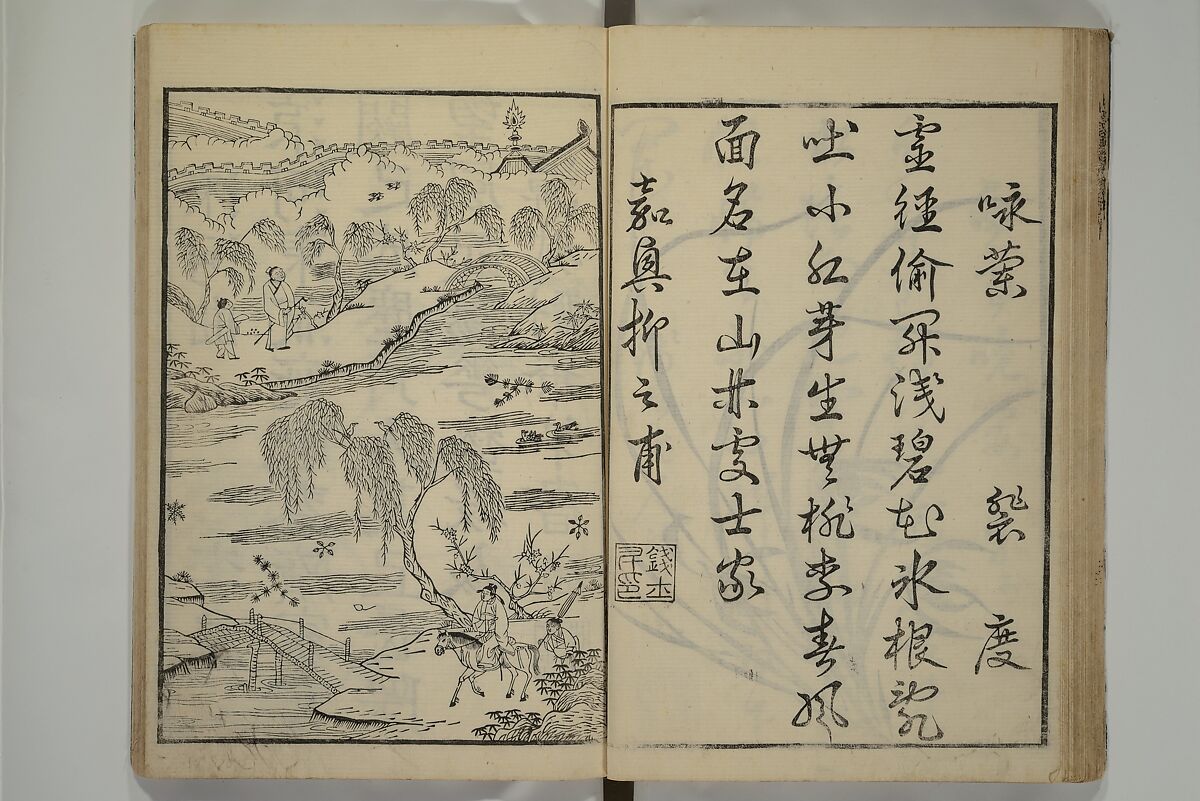 詠蘭 裴度
雪徑偷開淺碧花氷根亂
吐小紅芽生無桃李春風
面名在山林處士家
嘉興抑之甫
錢士升印